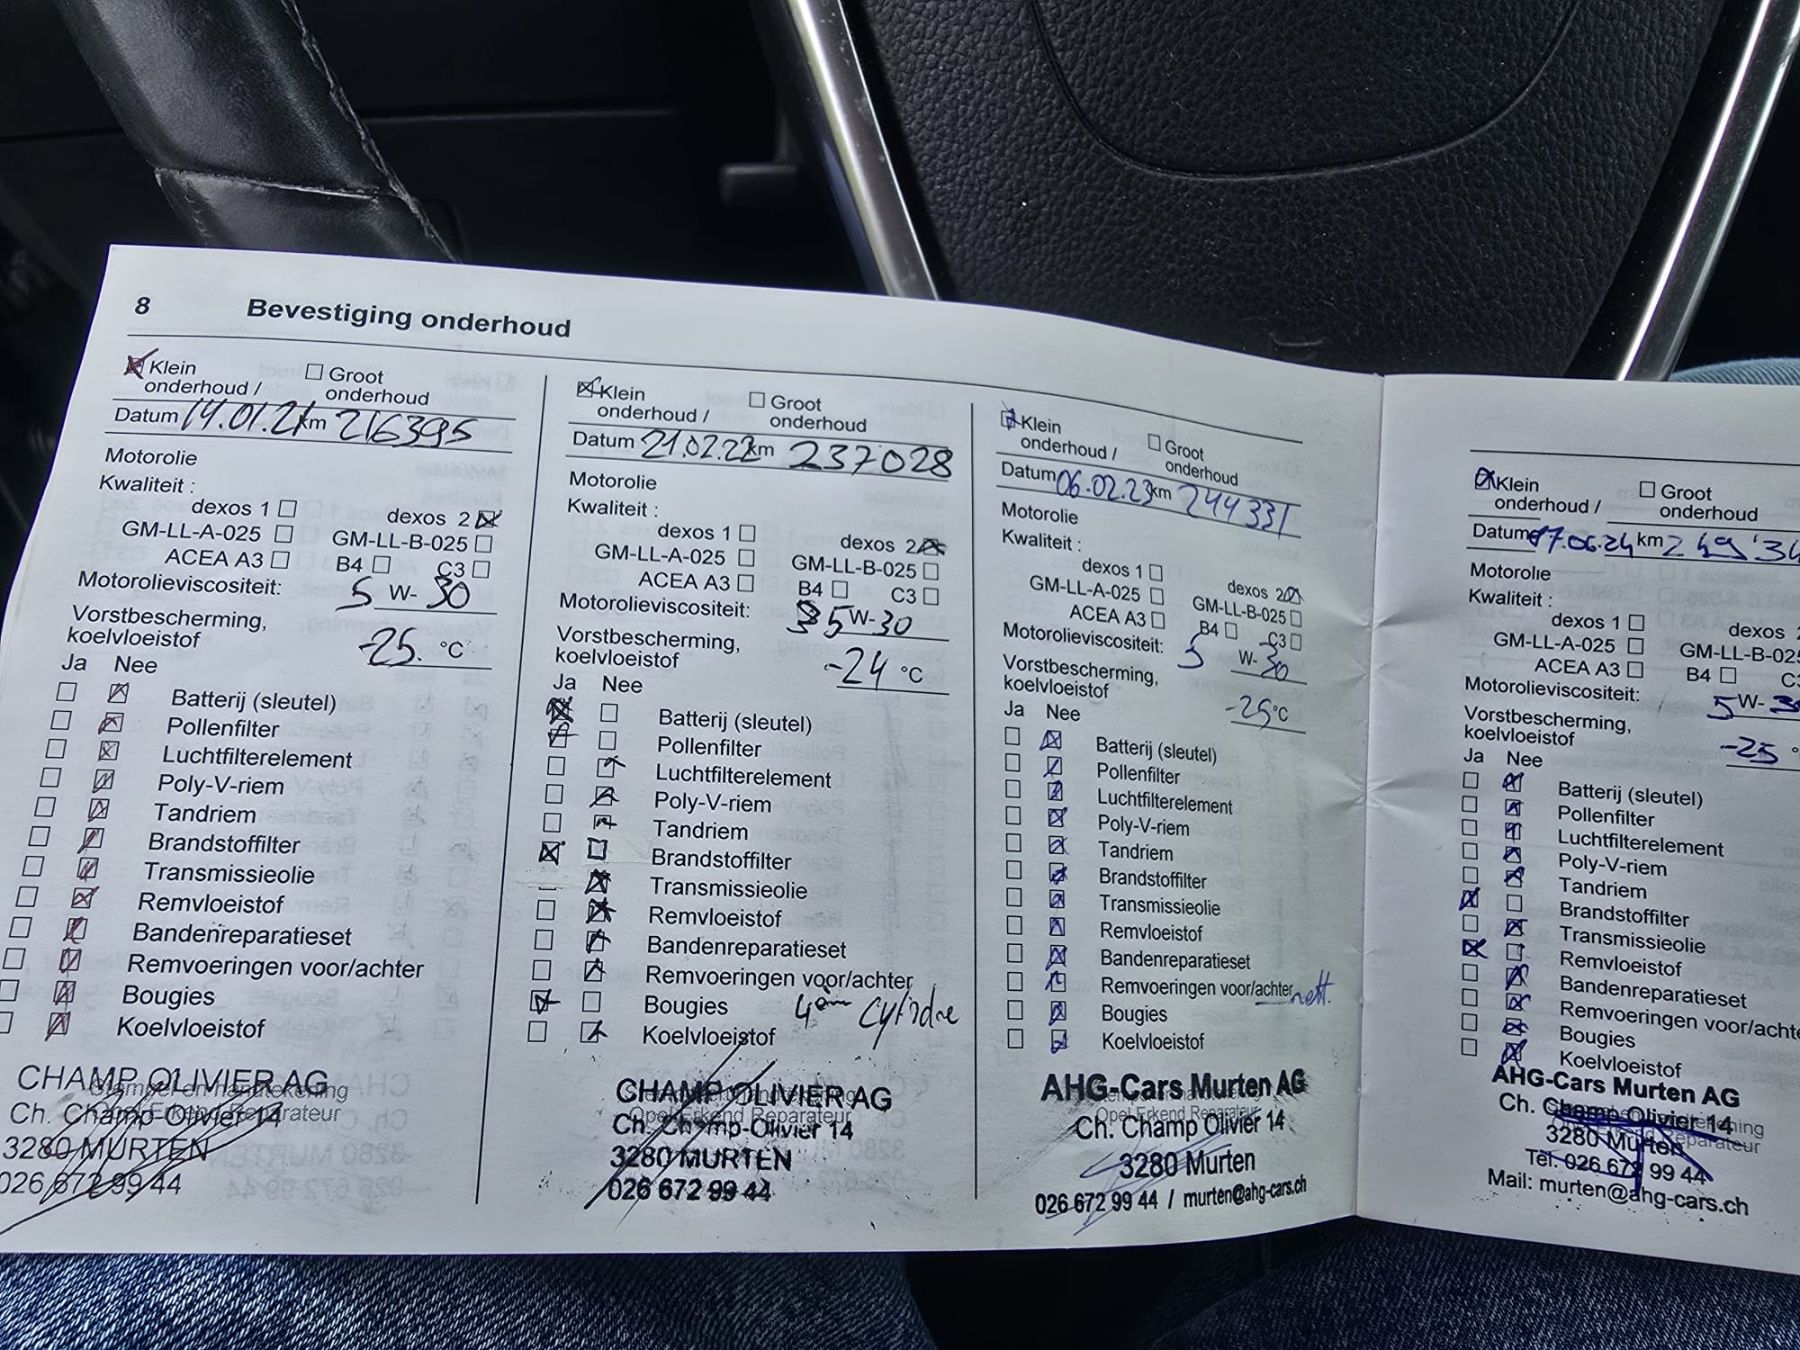 8 Bevestiging onderhoud
Klein onderhoud / Groot onderhoud
Datum 14.01.21 km 216395
Motorolie
Kwaliteit :
dexos 1 dexos 2
GM-LL-A-025 GM-LL-B-025
ACEA A3 B4 C3
Motorolieviscositeit: 5 W- 30
Vorstbescherming,
koelvloeistof -25. °C
Ja Nee
Batterij (sleutel)
Pollenfilter
Luchtfilterelement
Poly-V-riem
Tandriem
Brandstoffilter
Transmissieolie
Remvloeistof
Bandenreparatieset
Remvoeringen voor/achter
Bougies
Koelvloeistof
Stempel en handtekening
Opel Erkend Reparateur
CHAMP OLIVIER AG
Ch. Champ-Olivier 14
3280 MURTEN
026 672 99 44
Klein onderhoud / Groot onderhoud
Datum 21.02.22 km 237028
Motorolie
Kwaliteit :
dexos 1 dexos 2
GM-LL-A-025 GM-LL-B-025
ACEA A3 B4 C3
Motorolieviscositeit: 5 W- 30
Vorstbescherming,
koelvloeistof -24 °C
Ja Nee
Batterij (sleutel)
Pollenfilter
Luchtfilterelement
Poly-V-riem
Tandriem
Brandstoffilter
Transmissieolie
Remvloeistof
Bandenreparatieset
Remvoeringen voor/achter
Bougies 4em cylindre
Koelvloeistof
Opel Erkend Reparateur
CHAMP OLIVIER AG
Ch. Champ-Olivier 14
3280 MURTEN
026 672 99 44
Klein onderhoud / Groot onderhoud
Datum 06.02.23 km 244331
Motorolie
Kwaliteit :
dexos 1 dexos 2
GM-LL-A-025 GM-LL-B-025
ACEA A3 B4 C3
Motorolieviscositeit: 5 W- 30
Vorstbescherming,
koelvloeistof -25 °C
Ja Nee
Batterij (sleutel)
Pollenfilter
Luchtfilterelement
Poly-V-riem
Tandriem
Brandstoffilter
Transmissieolie
Remvloeistof
Bandenreparatieset
Remvoeringen voor/achter nett.
Bougies
Koelvloeistof
Opel Erkend Reparateur
AHG-Cars Murten AG
Ch. Champ Olivier 14
3280 Murten
026 672 99 44 / murten@ahg-cars.ch
Klein onderhoud / Groot onderhoud
Datum 17.06.24 km 249'34
Motorolie
Kwaliteit :
dexos 1 dexos 2
GM-LL-A-025 GM-LL-B-025
ACEA A3 B4 C3
Motorolieviscositeit: 5 W- 30
Vorstbescherming,
koelvloeistof -25 °
Ja Nee
Batterij (sleutel)
Pollenfilter
Luchtfilterelement
Poly-V-riem
Tandriem
Brandstoffilter
Transmissieolie
Remvloeistof
Bandenreparatieset
Remvoeringen voor/achte
Bougies
Koelvloeistof
AHG-Cars Murten AG
Ch. Champ Olivier 14
3280 Murten
Tel. 026 672 99 44
Mail: murten@ahg-cars.ch